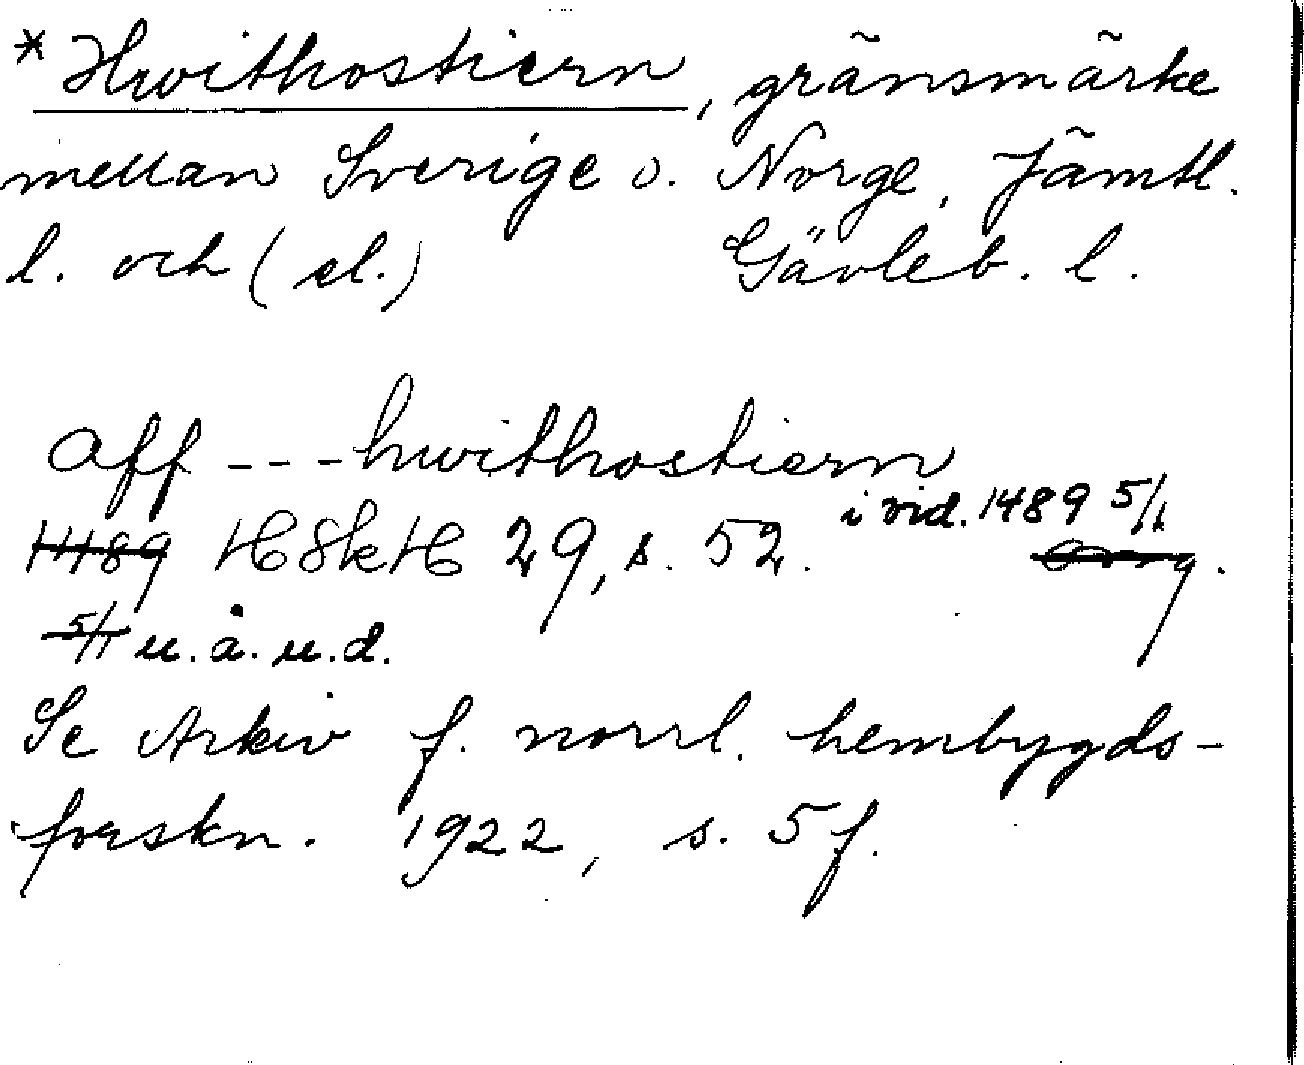 * Hwithostiern, gränsmärke
mellan Sverige o. Norge, Jämtl.
l. och (el.) Gävleb. l.
aff --- hwithostiern
i vid. 1489 5/1
1489 HSkH 29, s. 52. Orig.
5/1 u.å.u.d.
Se Arkiv f. norrl. hembygds-
forskn. 1922, s. 5 f.